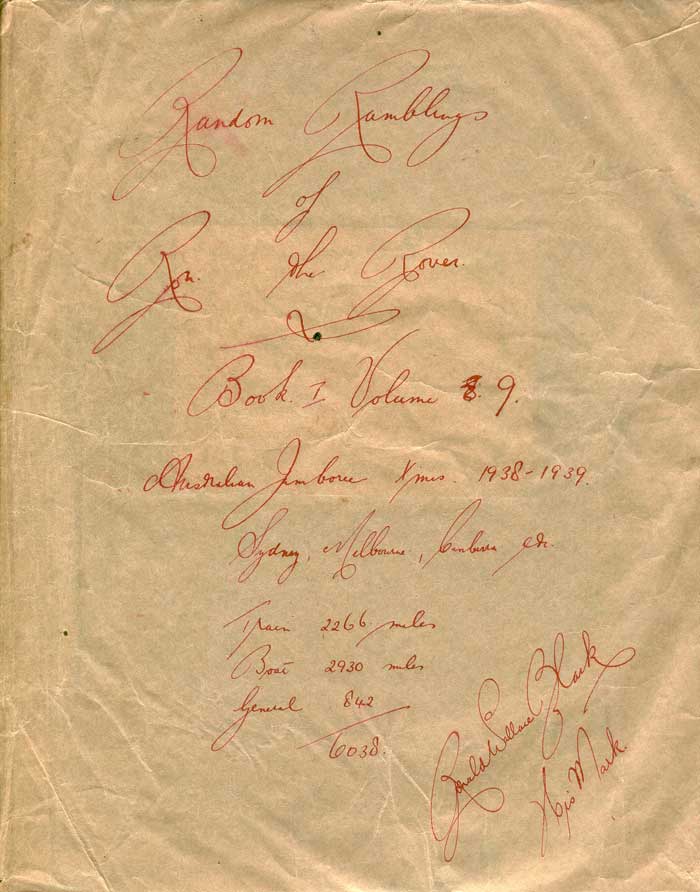 Random Ramblings
of
Ron. the Rover.
Book. I Volume 8. 9.
Australian Jamboree Xmas. 1938-1939.
Sydney, Melbourne, Canberra etc.
Train 2266 miles
Boat 2930 miles
General 842
6038.
Ronald Wallace Black
His Mark.